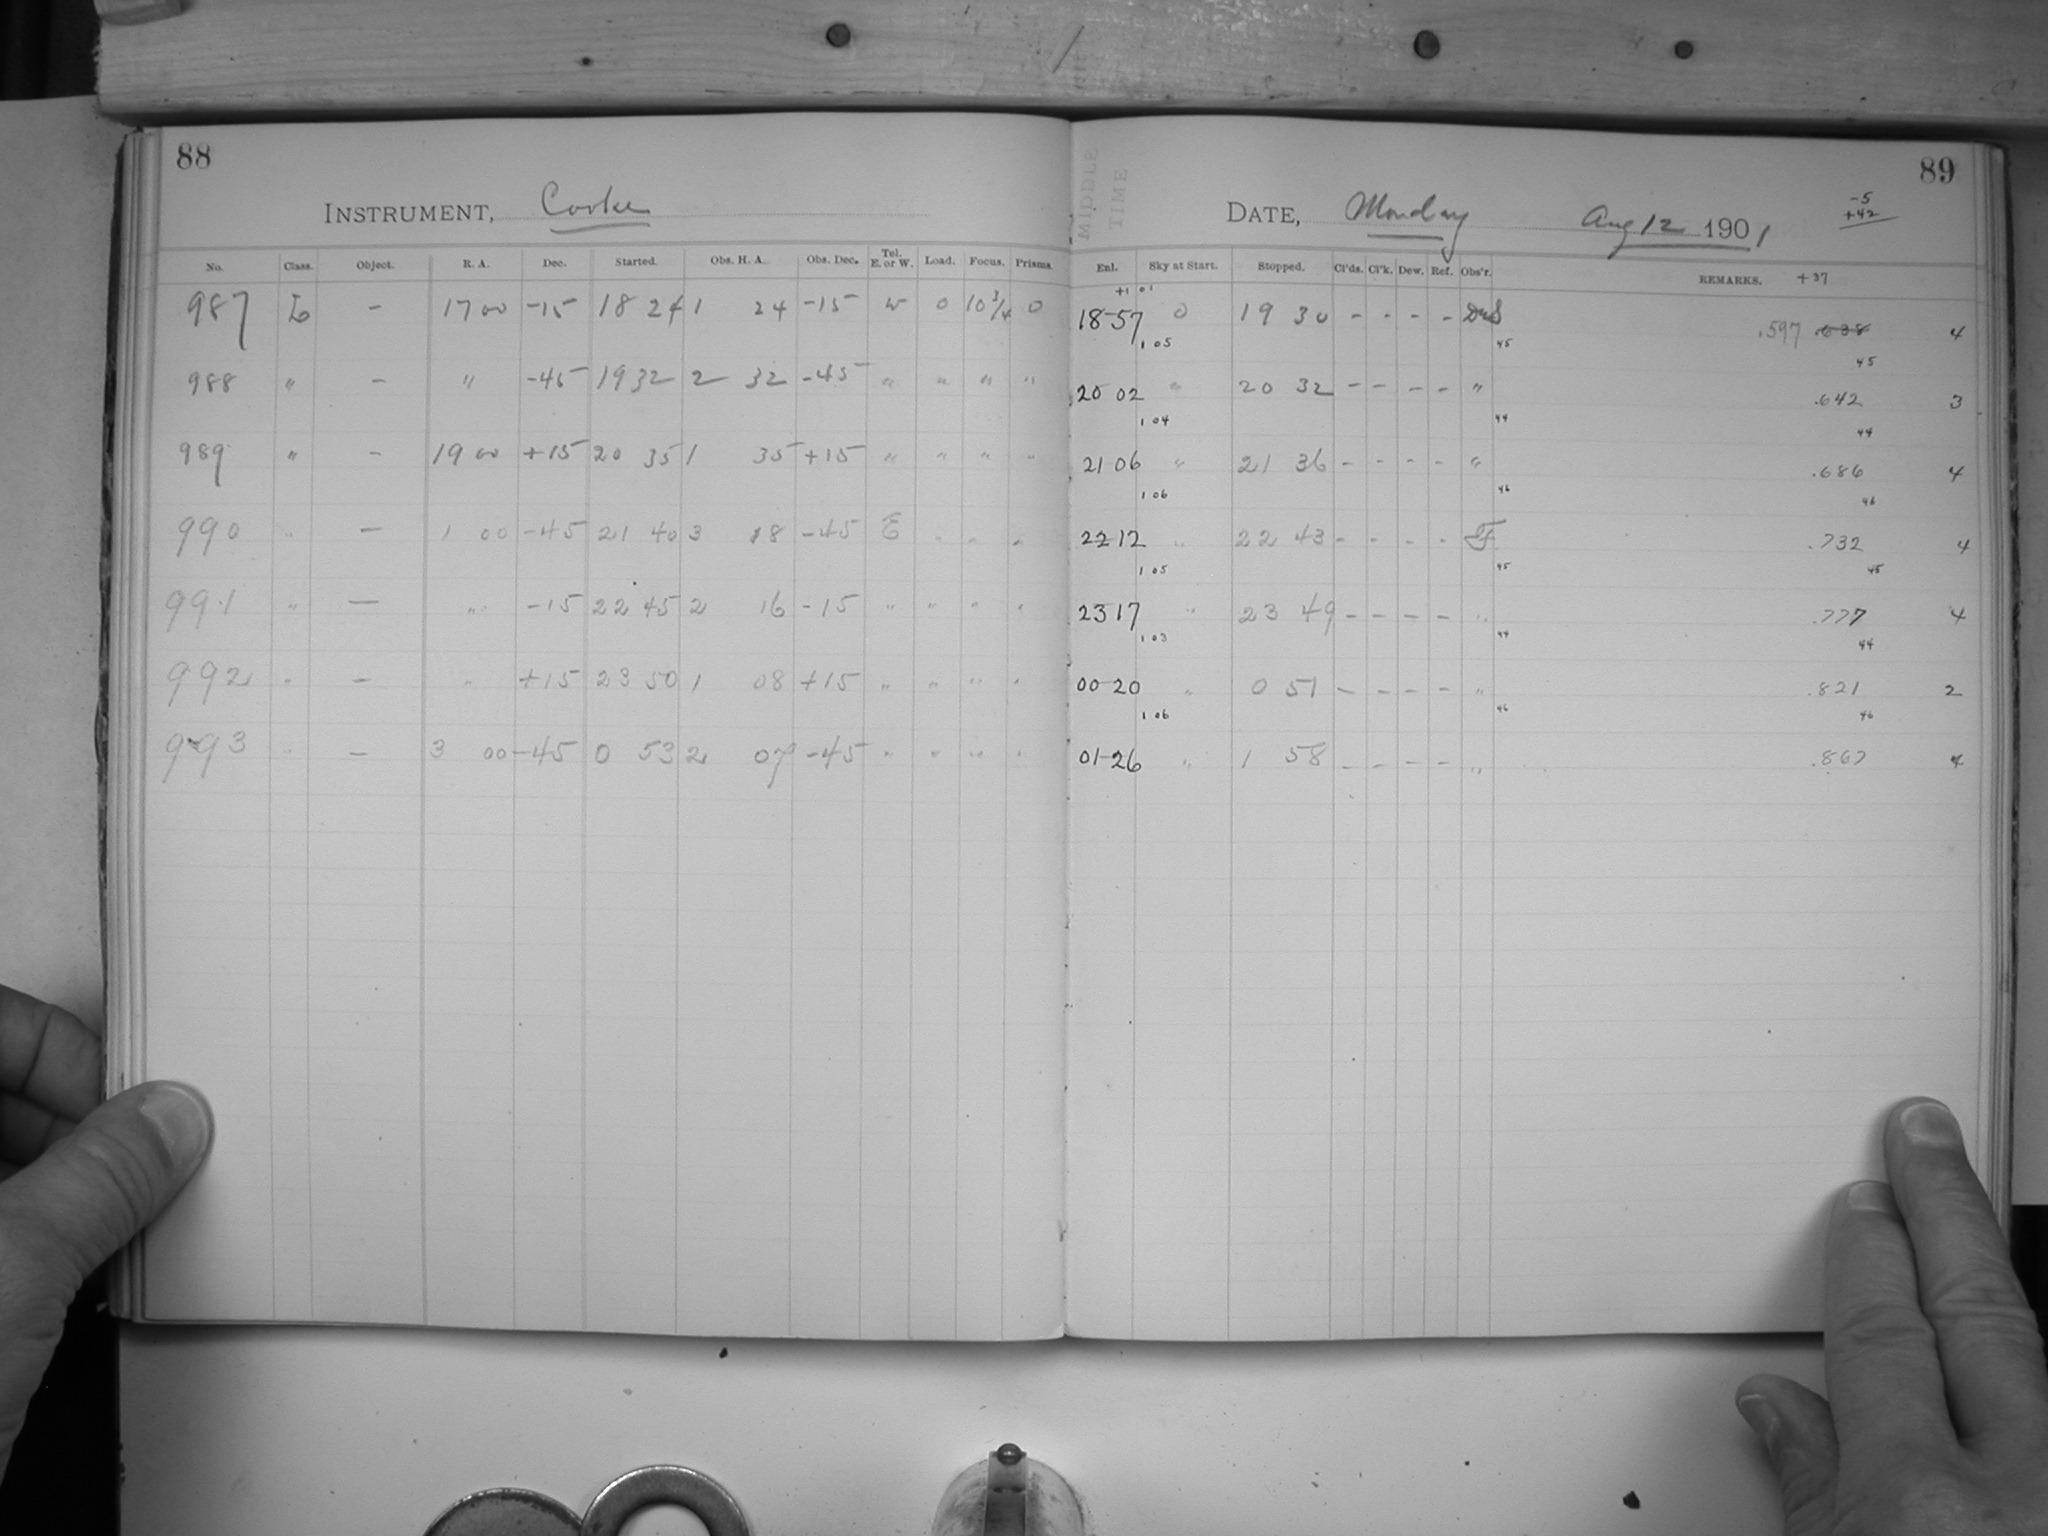 88
INSTRUMENT, Cooke
No. Class. Object. R. A. Dec. Started. Obs. H. A. Obs. Dec. Tel. E. or W. Load. Focus. Prisms.
987 L - 17 00 -15 18 24 1 24 -15 W 0 10 3/4 0
988 " - " -45 19 32 2 32 -45 " " " "
989 " - 19 00 +15 20 35 1 35 +15 " " " "
990 " - 1 00 -45 21 40 3 18 -45 E " " "
991 " - " -15 22 45 2 16 -15 " " " "
992 " - " +15 23 50 1 08 +15 " " " "
993 " - 3 00 -45 0 53 2 07 -45 " " " "
89
MIDDLE TIME
DATE, Monday Aug 12 1901
-5
+42
Enl. Sky at Start. Stopped. Cl'ds. Cl'k. Dew. Ref. Obs'r. REMARKS. +37
+1 01
18-57 0 19 30 - - - - DuS .597 .638 4
1 05 45 45
20 02 " 20 32 - - - - " .642 3
1 04 44 44
21 06 " 21 36 - - - - " .686 4
1 06 46 46
22 12 " 22 43 - - - - .732 4
1 05 45 45
23 17 " 23 49 - - - - " .777 4
1 03 44 44
00-20 " 0 51 - - - - " .821 2
1 06 46 46
01-26 " 1 58 - - - - " .867 4